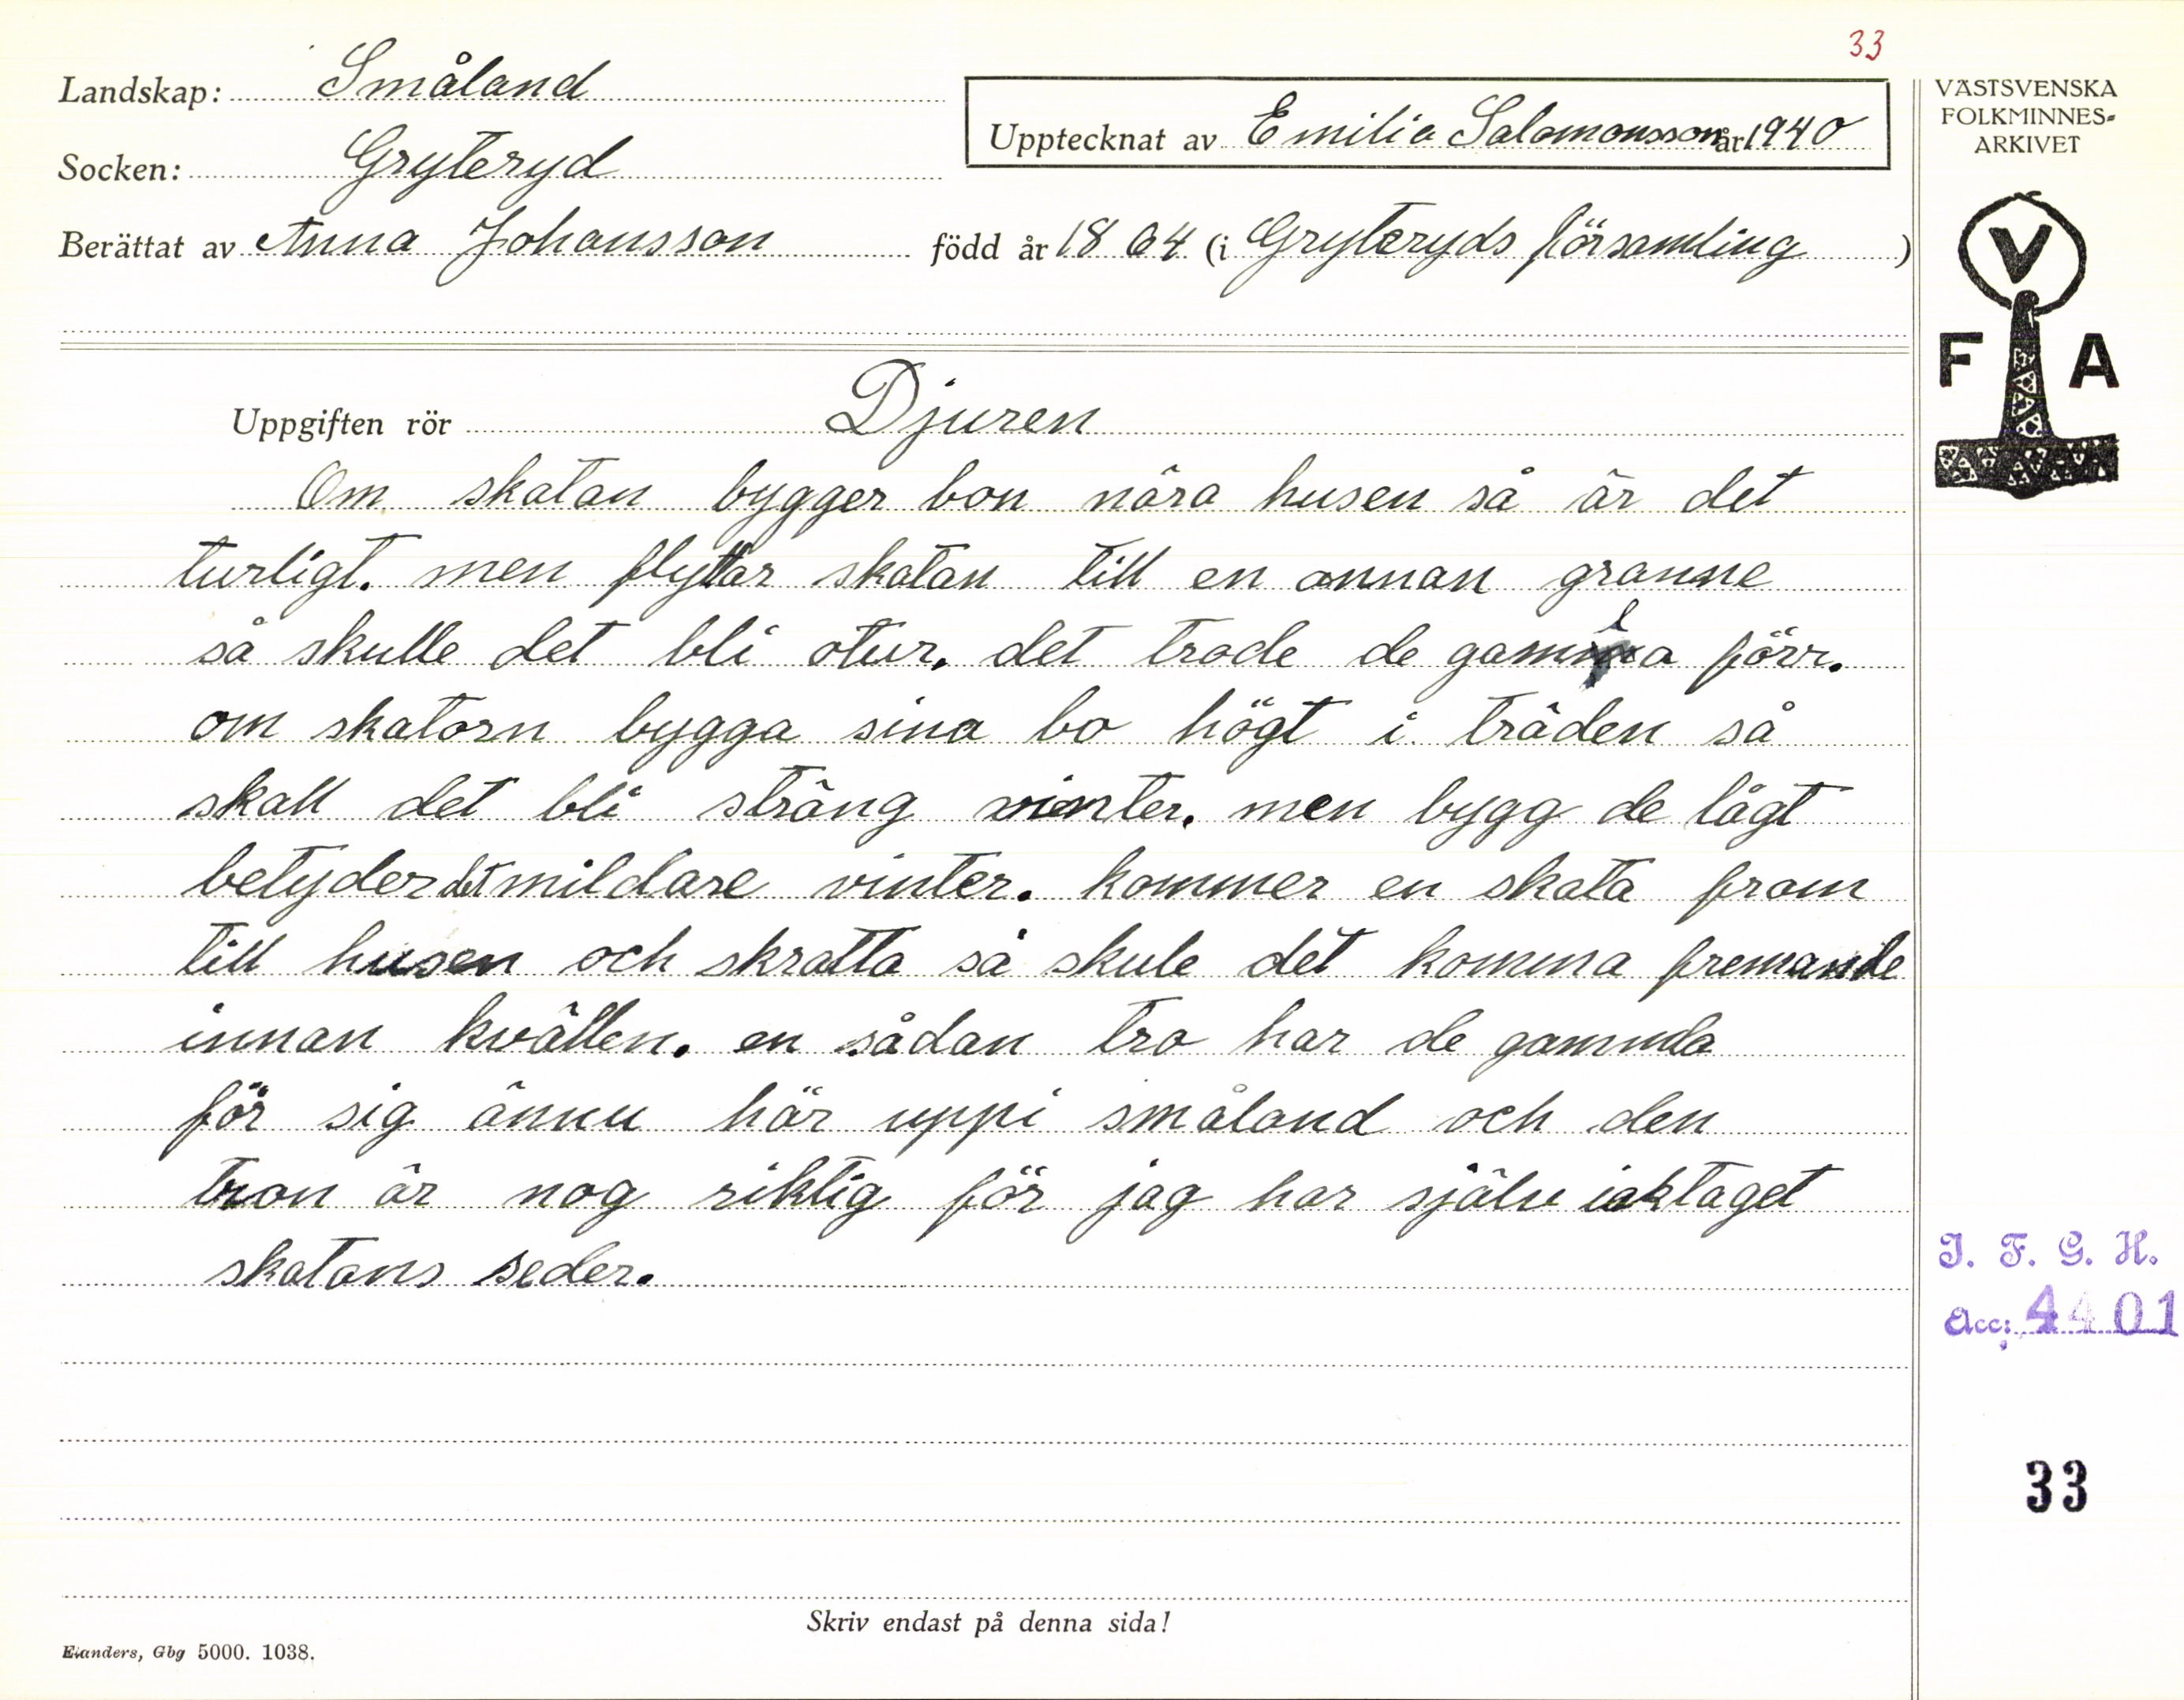 33
Landskap: Småland
Socken: Gryteryd
Upptecknat av Emilia Salomonsson år 1940
Berättat av Anna Johansson född år 1864 (i Gryteryds församling)
Uppgiften rör Djuren
Om skatan bygger bon nära husen så är det
turligt. men flyttar skatan till en annan granne
så skulle det bli otur. det trode de gamla förr.
om skatorn bygga sina bo högt i träden så
skall det bli sträng vinter. men bygg de lågt
betyder det mildare vinter. kommer en skata fram
till husen och skratta så skule det komma fremande
innan kvällen. en sådan tro har de gammla
för sig ännu här uppi småland och den
tron är nog riktig för jag har själv iaktaget
skatans seder.
Skriv endast på denna sida!
Elanders, Gbg 5000. 1038.
VÄSTSVENSKA
FOLKMINNES-
ARKIVET
V
F A
I. F. G. H.
Acc: 4401
33